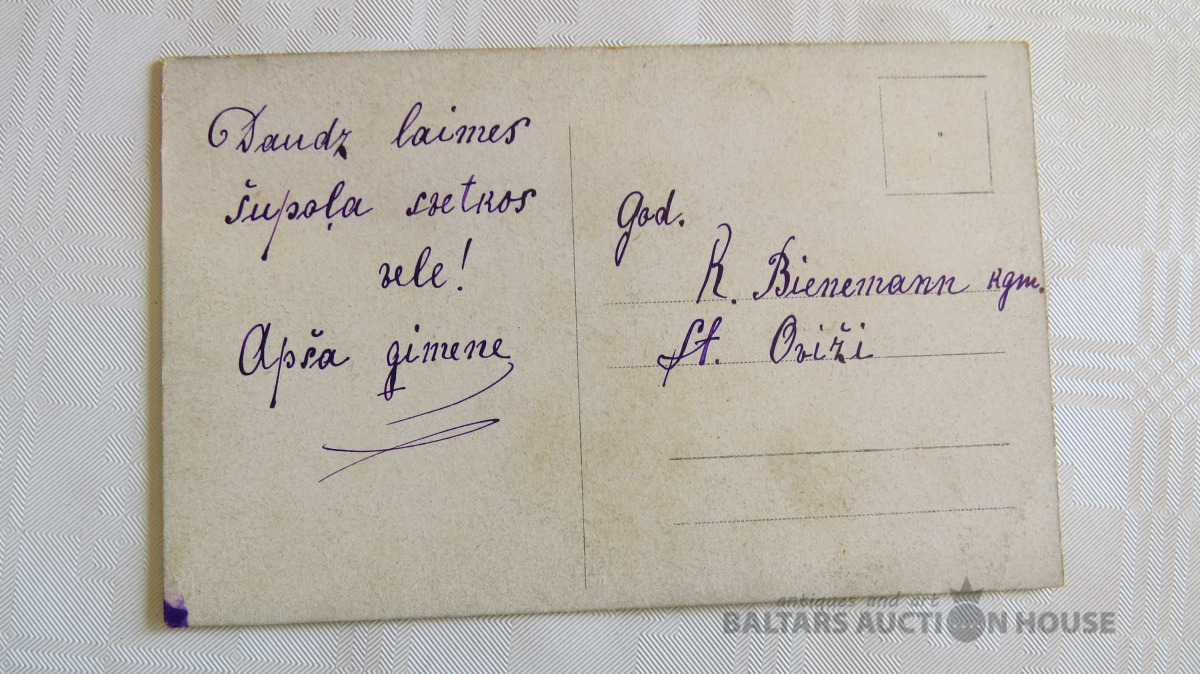 Daudz laimes
šupoļa svetkos
vele!
Apša gimene
God.
R. Bienemann kgm.
St. Oviži
antiques and art
BALTARS AUCTION HOUSE